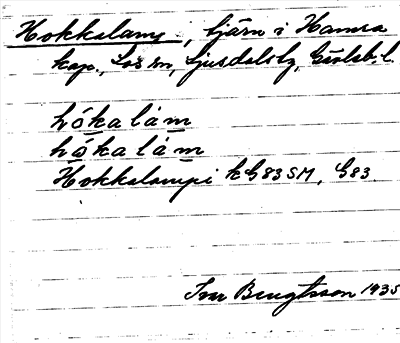 Hokkalamp, tjärn i Hamra
kap., Los sn, Ljusdals tg, Gävleb. l.
hókalàm
hókalàm
Hokkalampi k G83SM, G83
Bengtsson 1935